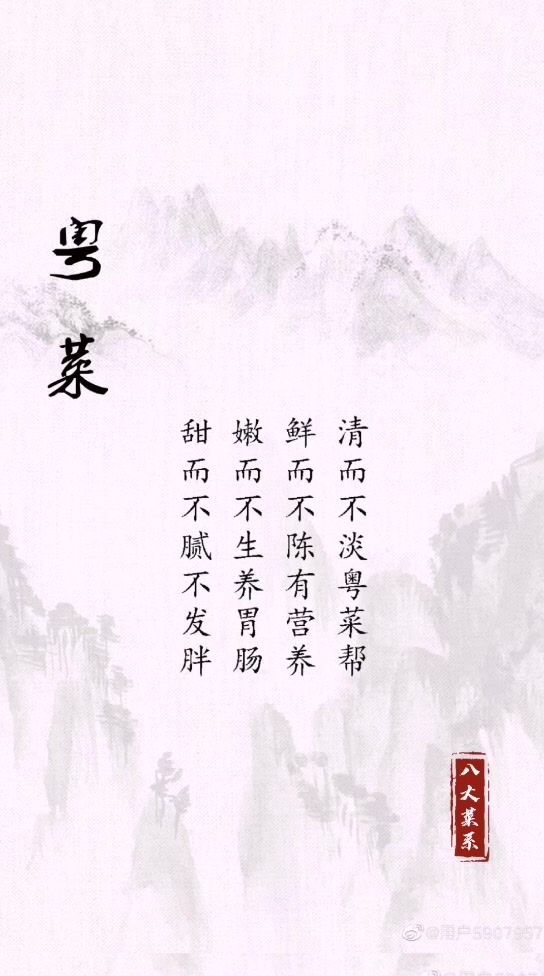 粤菜
清而不淡粤菜帮
鲜而不陈有营养
嫩而不生养胃肠
甜而不腻不发胖
八大菜系
@用户5907957